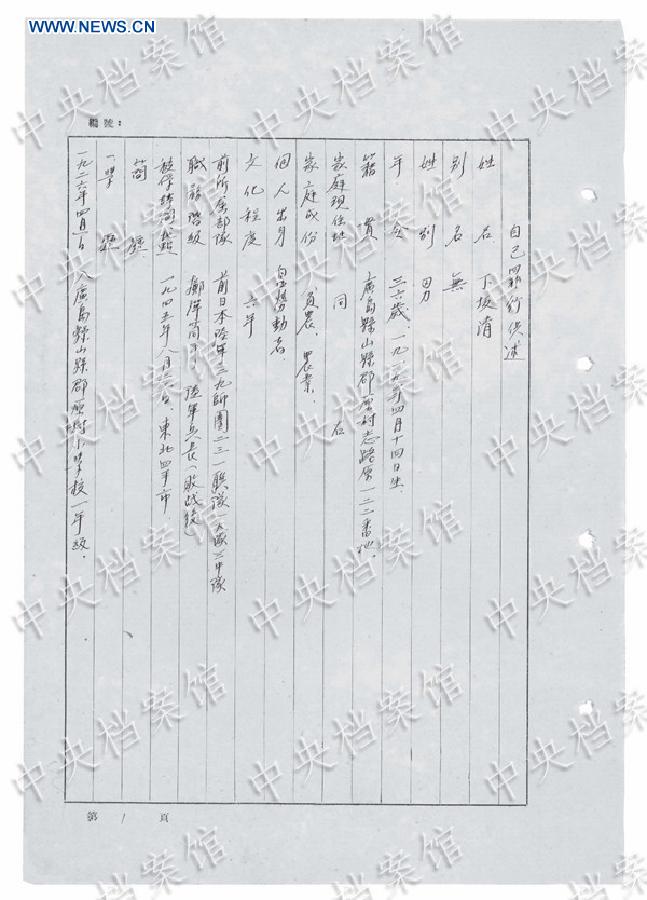 WWW.NEWS.CN
中央档案馆
編號：
自己罪行供述
姓名 下坂清
別名 無
性別 男
年令 三六歲．一九一九年四月十四日生．
籍貫 广島縣山縣郡原村志路原一二三番地．
家庭現住址 同右
家庭成份 貧農．農業．
個人出身 勞動者．
文化程度 六年
前所屬部隊 前日本陸軍三九師團二三一聯隊一大隊三中隊
職務階級 陸軍兵長
一九四五年八月 日．東北四平市
簡歷
學歷
一九二六年四月 日入廣島縣山縣郡原村小學校一年級．
第 1 頁